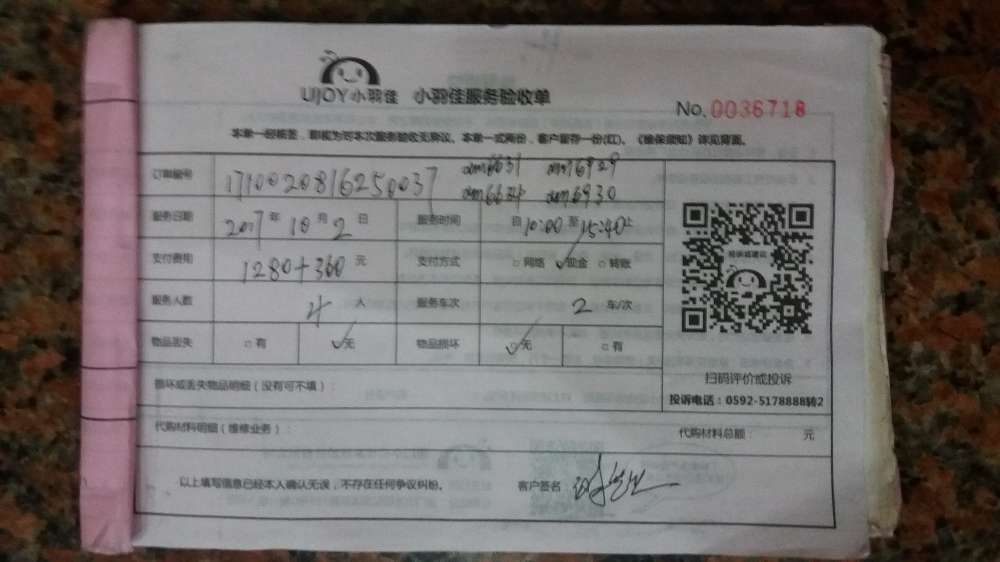 UJOY小羽佳 小羽佳服务验收单
No.0036718
本单一经核签，即视为对本次服务验收无异议。本单一式两份，客户留存一份(红)。《维保须知》详见背面。
订单编号 1710020816250037
服务日期 2017年10月2日 服务时间 自10:00至15:40止
支付费用 1280+360元 支付方式 □网络 ✓现金 □转账
服务人数 4人 服务车次 2车/次
物品丢失 □有 ✓无 物品损坏 ✓无 □有
损坏或丢失物品明细（没有可不填）：
扫码评价或投诉
投诉电话：0592-5178888转2
代购材料明细（维修业务）： 代购材料总额： 元
以上填写信息已经本人确认无误，不存在任何争议纠纷。 客户签名：